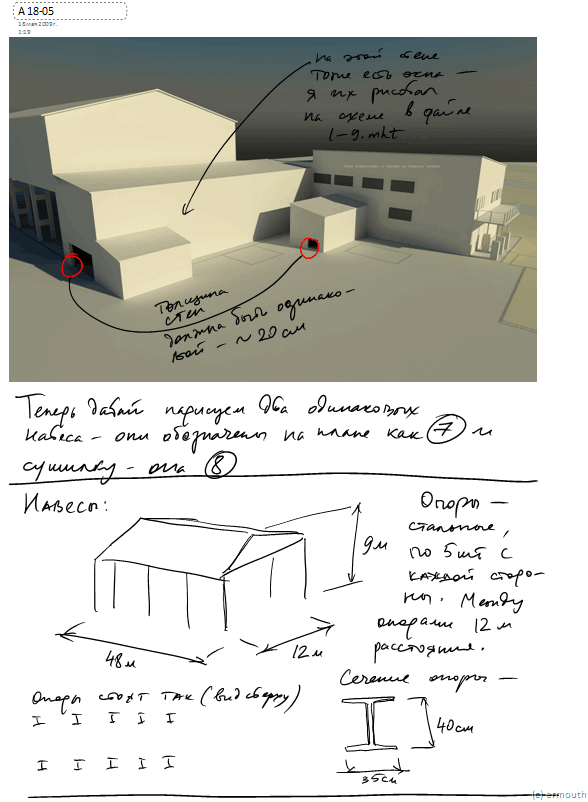 A 18-05
16 мая 2009 г.
1:19
на этой стене
тоже есть окна —
я их рисовал
на схеме в файле
1-9.mht
толщина
стен
должна быть одинако-
вой - ~ 20 см
Теперь давай нарисуем два одинаковых
навеса - они обозначены на плане как 7 и
сушилку - она 8
Навесы:
9м
48м
12м
Опоры —
стальные,
по 5шт с
каждой сторо-
ны. Между
опорами 12 м
расстояние.
Опоры стоят так (вид сверху)
Сечение опоры —
40см
35см
(c) ermouth